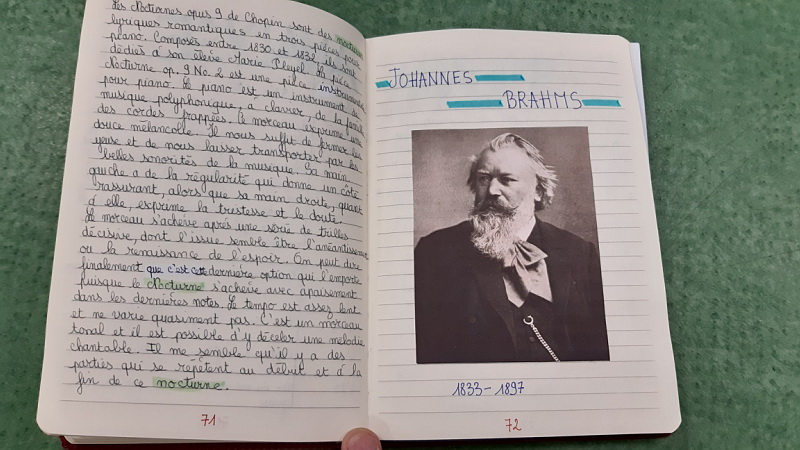 Les Nocturnes opus 9 de Chopin sont des nocturnes
lyriques romantiques en trois pièces pour
piano. Composés entre 1830 et 1832, ils sont
dédiés à son élève Marie Pleyel. La pièce
Nocturne op. 9 No. 2 est une pièce instrumentale
pour piano. Le piano est un instrument de
musique polyphonique, à clavier, de la famille
des cordes frappées. Ce morceau exprime une
douce mélancolie. Il nous suffit de fermer les
yeux et de nous laisser transporter par les
belles sonorités de la musique. Sa main
gauche a de la régularité qui donne un côté
rassurant, alors que sa main droite, quant
à elle, exprime la tristesse et le doute.
Le morceau s'achève après une série de trilles
décisive, dont l'issue semble être l'anéantissement
ou la renaissance de l'espoir. On peut dire
finalement que c'est cette dernière option qui l'emporte
puisque le Nocturne s'achève avec apaisement
dans les dernières notes. Le tempo est assez lent
et ne varie quasiment pas. C'est un morceau
tonal et il est possible d'y déceler une mélodie
chantable. Il me semble qu'il y a des
parties qui se répètent au début et à la
fin de ce nocturne.
71
JOHANNES
BRAHMS
1833-1897
72